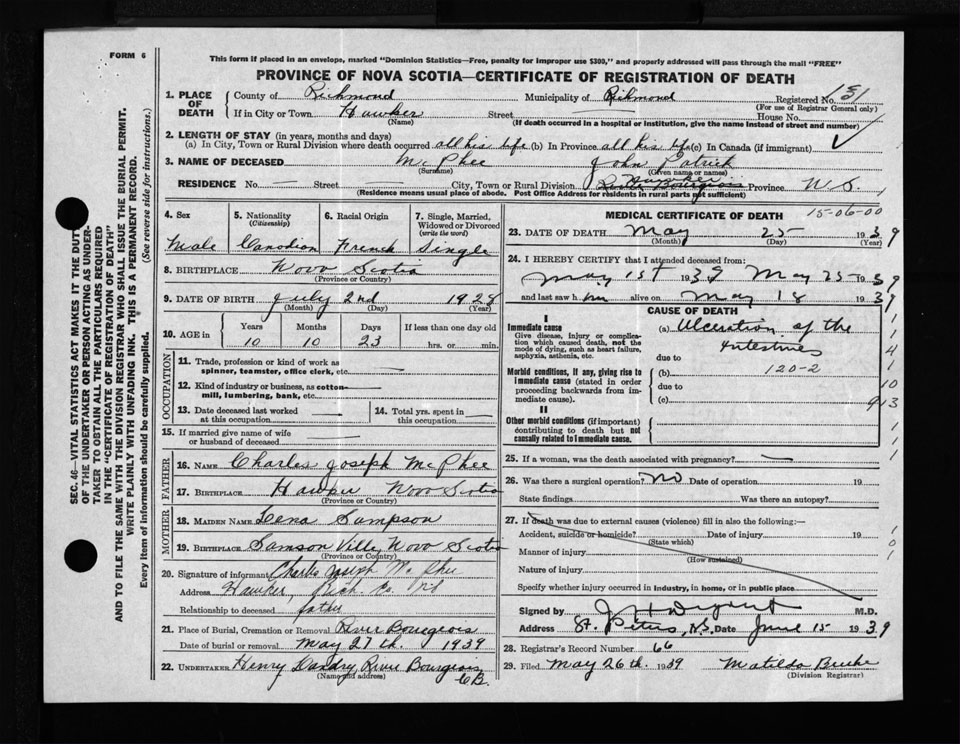 FORM 6
This form if placed in an envelope, marked "Dominion Statistics—Free, penalty for improper use $300," and properly addressed will pass through the mail "FREE"
PROVINCE OF NOVA SCOTIA—CERTIFICATE OF REGISTRATION OF DEATH
SEC. 46—VITAL STATISTICS ACT MAKES IT THE DUTY
OF THE UNDERTAKER OR PERSON ACTING AS UNDER-
TAKER TO OBTAIN ALL THE PARTICULARS REQUIRED
IN THE "CERTIFICATE OF REGISTRATION OF DEATH"
AND TO FILE THE SAME WITH THE DIVISION REGISTRAR WHO SHALL ISSUE THE BURIAL PERMIT.
WRITE PLAINLY WITH UNFADING INK. THIS IS A PERMANENT RECORD.
Every item of information should be carefully supplied. (See reverse side for instructions.)
1. PLACE OF DEATH County of Richmond Municipality of Richmond Registered No. 131
(For use of Registrar General only)
If in City or Town Hawker Street House No.
(Name) (If death occurred in a hospital or institution, give the name instead of street and number)
2. LENGTH OF STAY (in years, months and days)
(a) In City, Town or Rural Division where death occurred all his life (b) In Province all his life (c) In Canada (if immigrant)
3. NAME OF DECEASED McPhee John Patrick
(Surname) (Given name or names)
Hawker
RESIDENCE No. — Street City, Town or Rural Division River Bourgeois Province N.S.
(Residence means usual place of abode. Post Office Address for residents in rural parts not sufficient)
4. Sex 5. Nationality (Citizenship) 6. Racial Origin 7. Single, Married, Widowed or Divorced (write the word)
Male Canadian French Single
8. BIRTHPLACE Nova Scotia
(Province or Country)
9. DATE OF BIRTH July 2nd 1928
(Month) (Day) (Year)
10. AGE in Years Months Days If less than one day old
10 10 23 hrs. or min.
OCCUPATION
11. Trade, profession or kind of work as
spinner, teamster, office clerk, etc.
12. Kind of industry or business, as cotton-
mill, lumbering, bank, etc.
13. Date deceased last worked at this occupation 14. Total yrs. spent in this occupation
15. If married give name of wife
or husband of deceased
FATHER
16. NAME Charles Joseph McPhee
17. BIRTHPLACE Hawker Nova Scotia
(Province or Country)
MOTHER
18. MAIDEN NAME Lena Sampson
19. BIRTHPLACE Samson Ville Nova Scotia
(Province or Country)
20. Signature of informant Charles Joseph McPhee
Address Hawker, Rich. Co.
Relationship to deceased father
21. Place of Burial, Cremation or Removal River Bourgeois
Date of burial or removal May 27th. 1939
22. UNDERTAKER Henry River Bourgeois
(Name and address) C.B.
MEDICAL CERTIFICATE OF DEATH 15-06-00
23. DATE OF DEATH May 25 1939
(Month) (Day) (Year)
24. I HEREBY CERTIFY that I attended deceased from:
May 1st 1939 May 25 1939
and last saw him alive on May 18 1939
CAUSE OF DEATH
I
Immediate cause (a) Ulceration of the
Give disease, injury or complica- Intestines
tion which caused death, not the
mode of dying, such as heart failure,
asphyxia, asthenia, etc. due to
Morbid conditions, if any, giving rise to (b) 120-2
immediate cause (stated in order due to
proceeding backwards from im-
mediate cause). (c) 913
II
Other morbid conditions (if important)
contributing to death but not
causally related to immediate cause.
1
1
4
1
10
25. If a woman, was the death associated with pregnancy? —
26. Was there a surgical operation? No Date of operation 19
State findings Was there an autopsy?
27. If death was due to external causes (violence) fill in also the following:—
Accident, suicide or homicide? Date of injury 19
(State which)
Manner of injury
(How sustained)
Nature of injury
Specify whether injury occurred in industry, in home, or in public place
1
0
1
Signed by M.D.
Address St. Peters, N.S. Date June 15 1939
28. Registrar's Record Number 66
29. Filed May 26th. 1939 Matilda Burke
(Division Registrar)